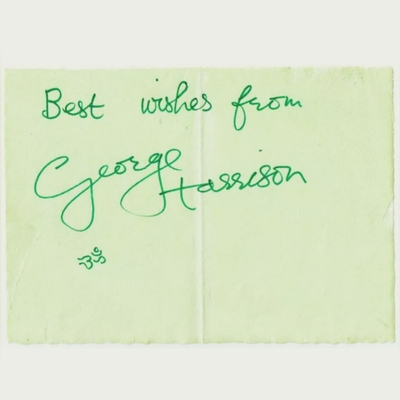 Best wishes from
George Harrison
ॐ